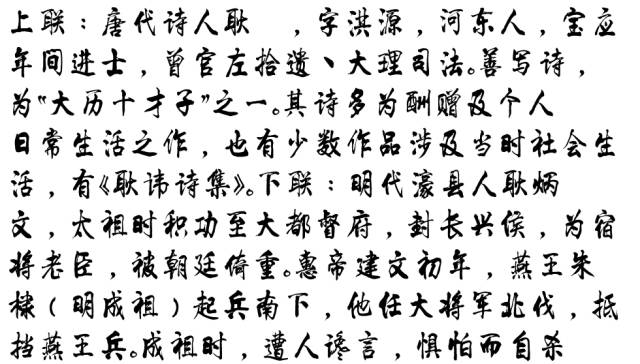 上联：唐代诗人耿　，字洪源，河东人，宝应
年间进士，曾官左拾遗、大理司法。善写诗，
为“大历十才子”之一。其诗多为酬赠及个人
日常生活之作，也有少数作品涉及当时社会生
活，有《耿讳诗集》。下联：明代濠县人耿炳
文，太祖时积功至大都督府，封长兴侯，为宿
将老臣，被朝廷倚重。惠帝建文初年，燕王朱
棣（明成祖）起兵南下，他任大将军北伐，抵
挡燕王兵。成祖时，遭人谗言，惧怕而自杀